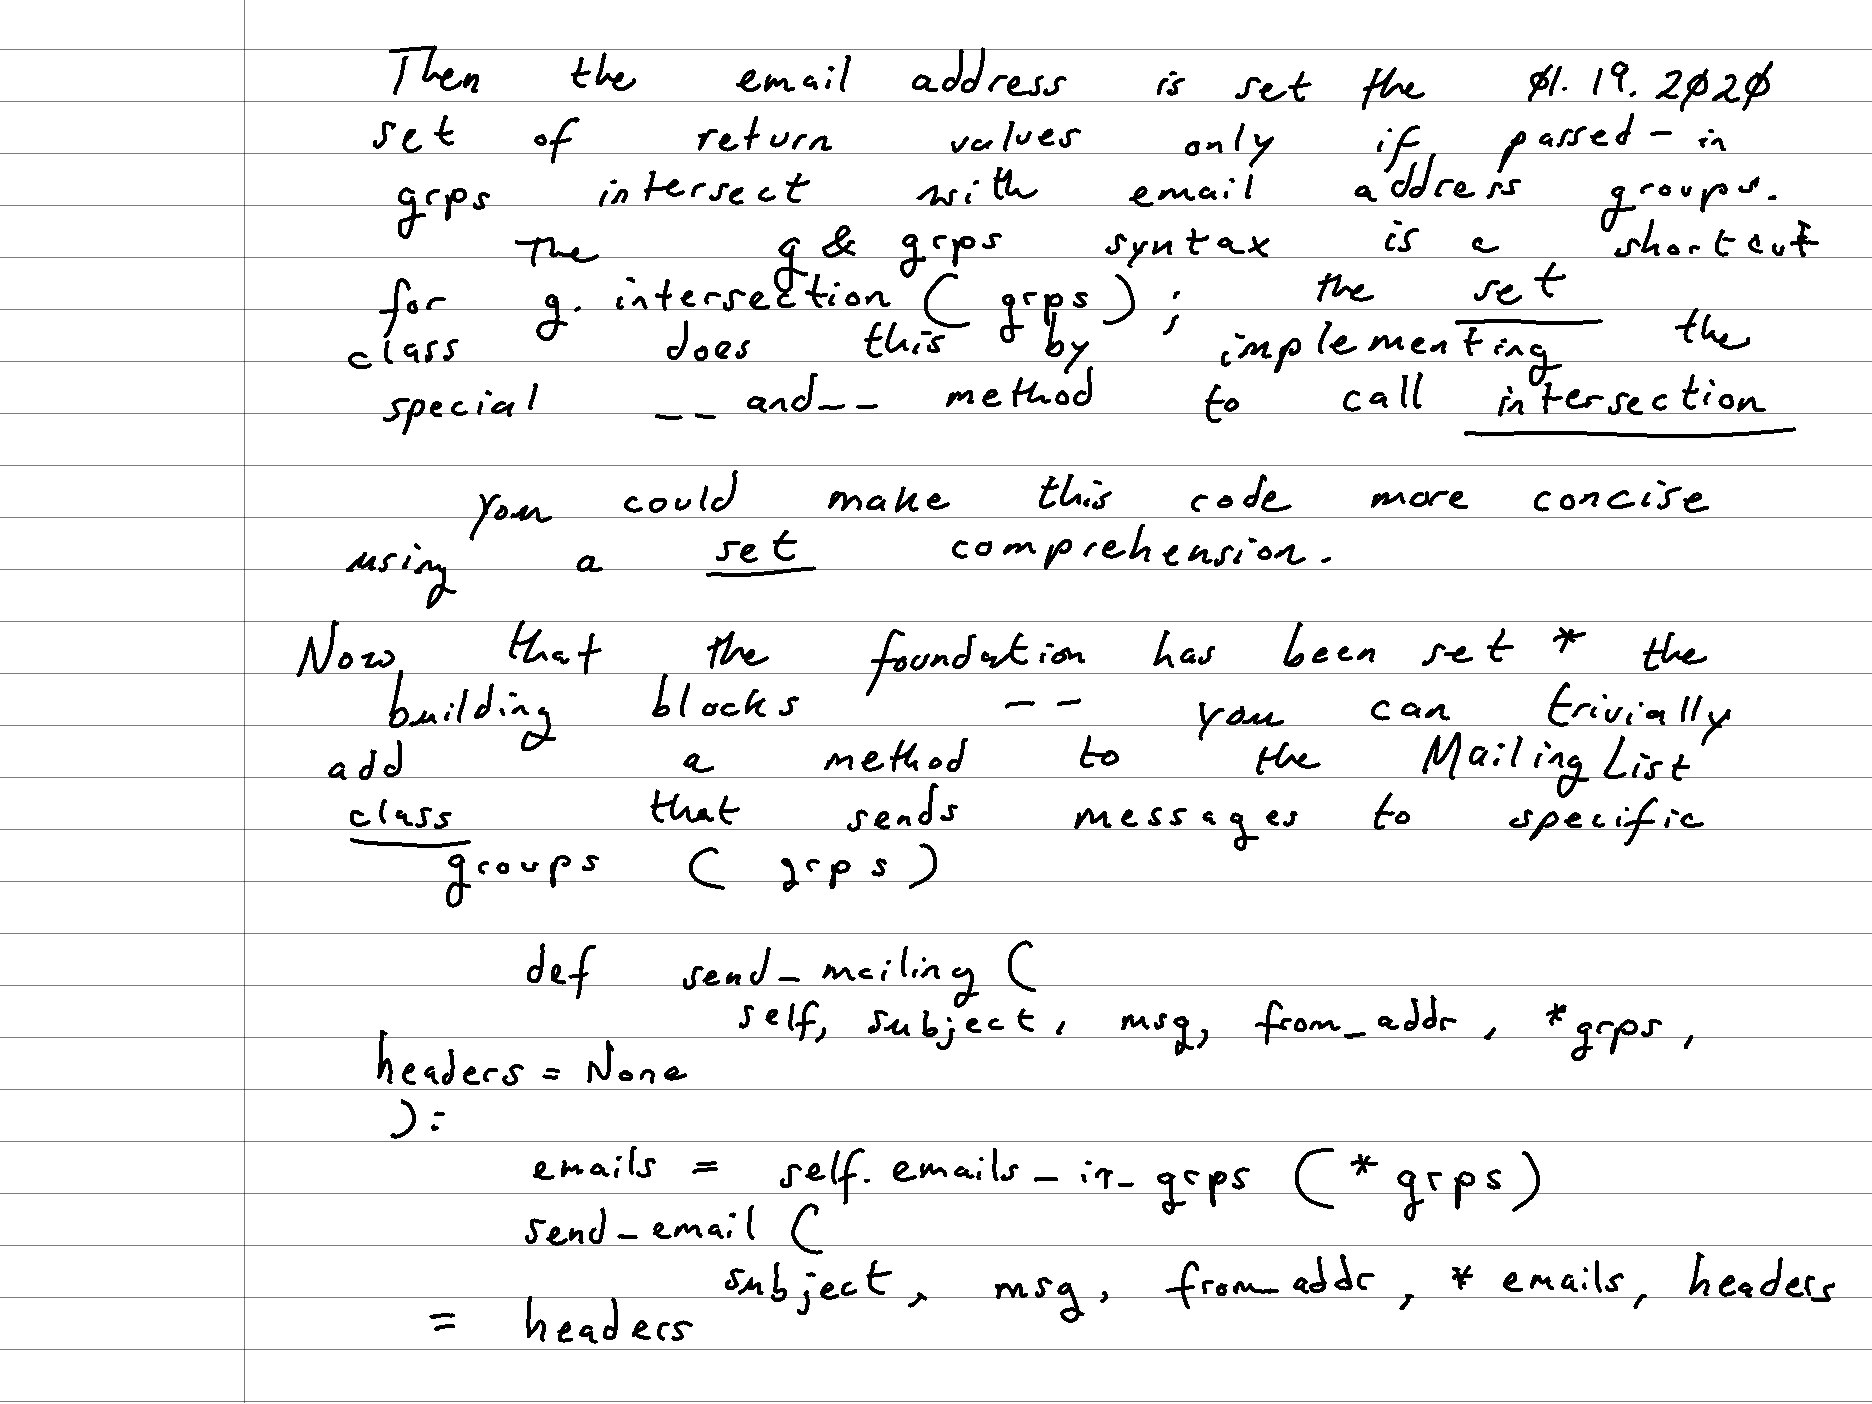 Then the email address is set the 01.19.2020
set of return values only if passed-in
grps intersect with email address groups.
The g & grps syntax is a shortcut
for g.intersection(grps); the set
class does this by implementing the
special __and__ method to call intersection
You could make this code more concise
using a set comprehension.
Now that the foundation has been set * the
building blocks -- you can trivially
add a method to the MailingList
class that sends messages to specific
groups (grps)
def send_mailing(
self, subject, msg, from_addr, *grps,
headers = None
):
emails = self.emails_in_grps(*grps)
send_email(
subject, msg, from_addr, *emails, headers
= headers